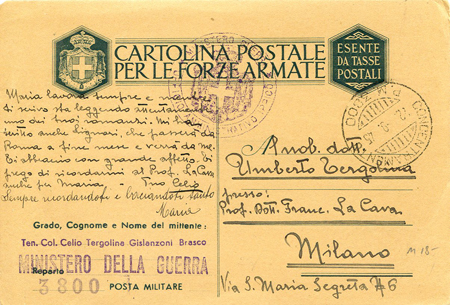 CARTOLINA POSTALE
PER LE FORZE ARMATE
ESENTE
DA TASSE
POSTALI
Maria lavora sempre e mentre
ti scrivo sta leggendo
uno dei tuoi romanzi. Mi ha
scritto anche Lignari, che passerà da
Roma a fine mese e verrà da me.
Ti abbraccio con grande affetto. Ti
prego di ricordarmi al Prof. La Cava
anche per Maria - Tuo Celio
Sempre ricordandoti e
Maria
Grado, Cognome e Nome del mittente:
Ten. Col. Celio Tergolina Gislanzoni Brasco
MINISTERO DELLA GUERRA
Reparto
3800 POSTA MILITARE
CONCENTRAMENTO
P.M.
Al nob. dott.
Umberto Tergolina
presso:
Prof. Dott. Franc. La Cava
Milano
Via S. Maria Segreta 7/6
M 18-